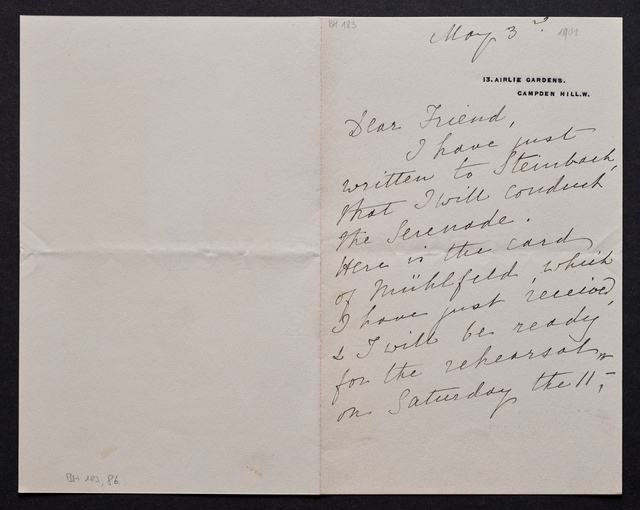 BH 183, 86
BH 183
May 3rd
1901
13. AIRLIE GARDENS.
CAMPDEN HILL.W.
Dear Friend,
I have just
written to Steinbach,
that I will conduct
the Serenade.
Here is the card
of Mühlfeld, which
I have just received,
& I will be ready
for the rehearsal
on Saturday the 11th